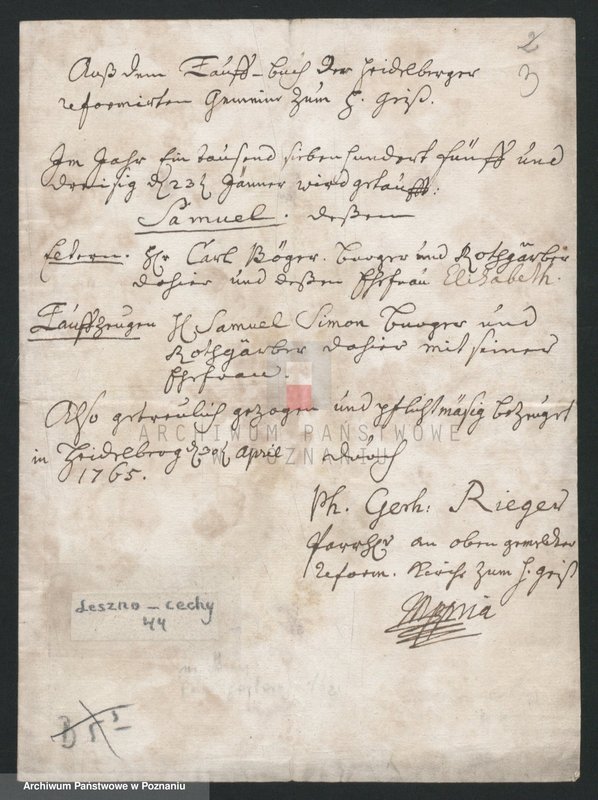 2
3
Auß dem Tauff-buch der Heidelberger
reformirten Gemeine zum H. Geist.
Im Jahr Ein tausend siebenhundert fünff und
dreisig d. 23t. Jänner wird getaufft:
Samuel. deßen
Eltern. Hr. Carl Böger. burger und Rothgärber
dahier und deßen Ehefrau Elisabeth.
Tauffzeugen H. Samuel Simon burger und
Rothgärber dahier mit seiner
Ehefrau.
Also getreulich gezogen und pflichtmäsig bezeuget
in Heidelberg April durch
1765.
Ph. Gerh: Rieger
Pfarrer an oben gemelter
reform. Kirche zum H. Geist
ARCHIWUM PAŃSTWOWE
W POZNANIU
Leszno - cechy
44
Archiwum Państwowe w Poznaniu